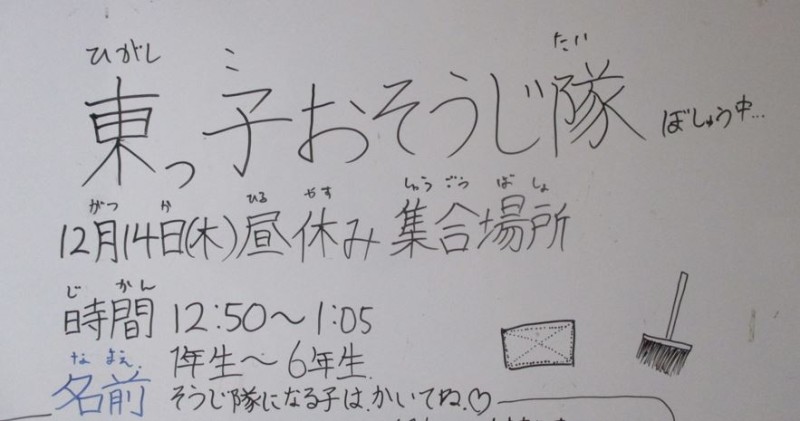 ひがし ミ たい
東っ子おそうじ隊 ぼしゅう中...
がつ か ひる やす しゅうごう ばしょ
12月14日(木)昼休み 集合場所
じ かん
時間 12:50〜1:05
1年生〜6年生
な まえ
名前 そうじ隊になる子は、かいてね。♡